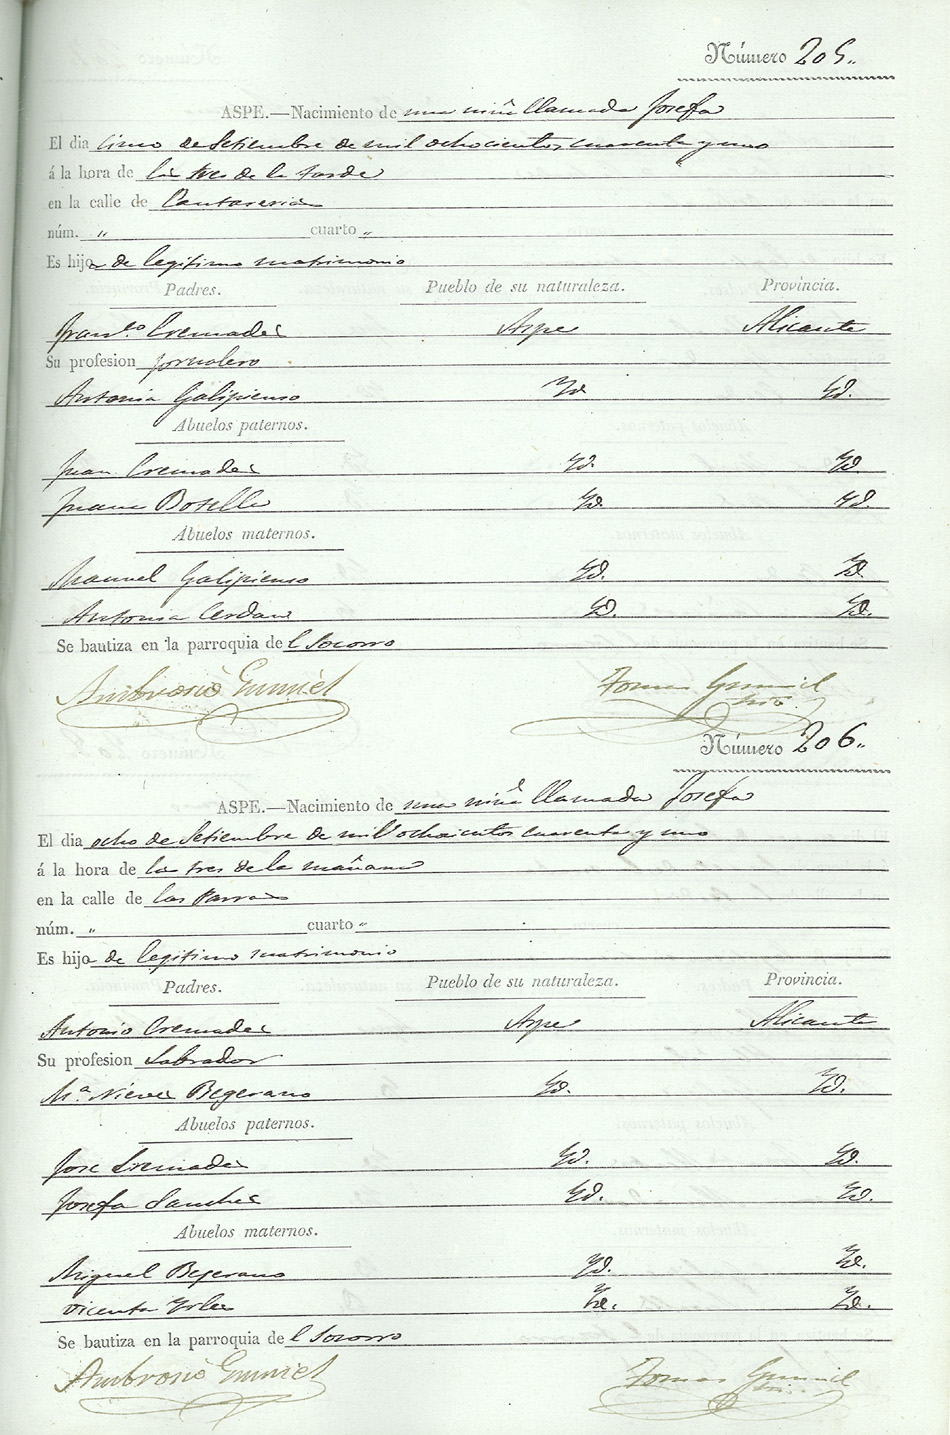 Número 205„
ASPE.—Nacimiento de una niña llamada Josefa
El dia cinco de Setiembre de mil ochocientos cuarenta y uno
á la hora de las tres de la tarde
en la calle de Cantareria
núm. „ cuarto „
Es hija de legitimo matrimonio
Padres. Pueblo de su naturaleza. Provincia.
Franco. Cremades Aspe Alicante
Su profesion jornalero
Antonia Galipienso Yd. Yd.
Abuelos paternos.
Juan Cremades Yd. Yd.
Juana Botella Yd. Yd.
Abuelos maternos.
Manuel Galipienso Yd. Yd.
Antonia Cerdan Yd. Yd.
Se bautiza en la parroquia del Socorro
Ambrosio Gumiel Tomas Gumiel
Número 206„
ASPE.—Nacimiento de una niña llamada Josefa
El dia ocho de Setiembre de mil ochocientos cuarenta y uno
á la hora de las tres de la mañana
en la calle de las Parras
núm. „ cuarto „
Es hija de legitimo matrimonio
Padres. Pueblo de su naturaleza. Provincia.
Antonio Cremades Aspe Alicante
Su profesion Labrador
Mª Nieves Begerano Yd. Yd.
Abuelos paternos.
Jose Cremades Yd. Yd.
Josefa Sanchez Yd. Yd.
Abuelos maternos.
Miguel Begerano Yd. Yd.
Vicenta Yrles Yd. Yd.
Se bautiza en la parroquia del Socorro
Ambrosio Gumiel Tomas Gumiel